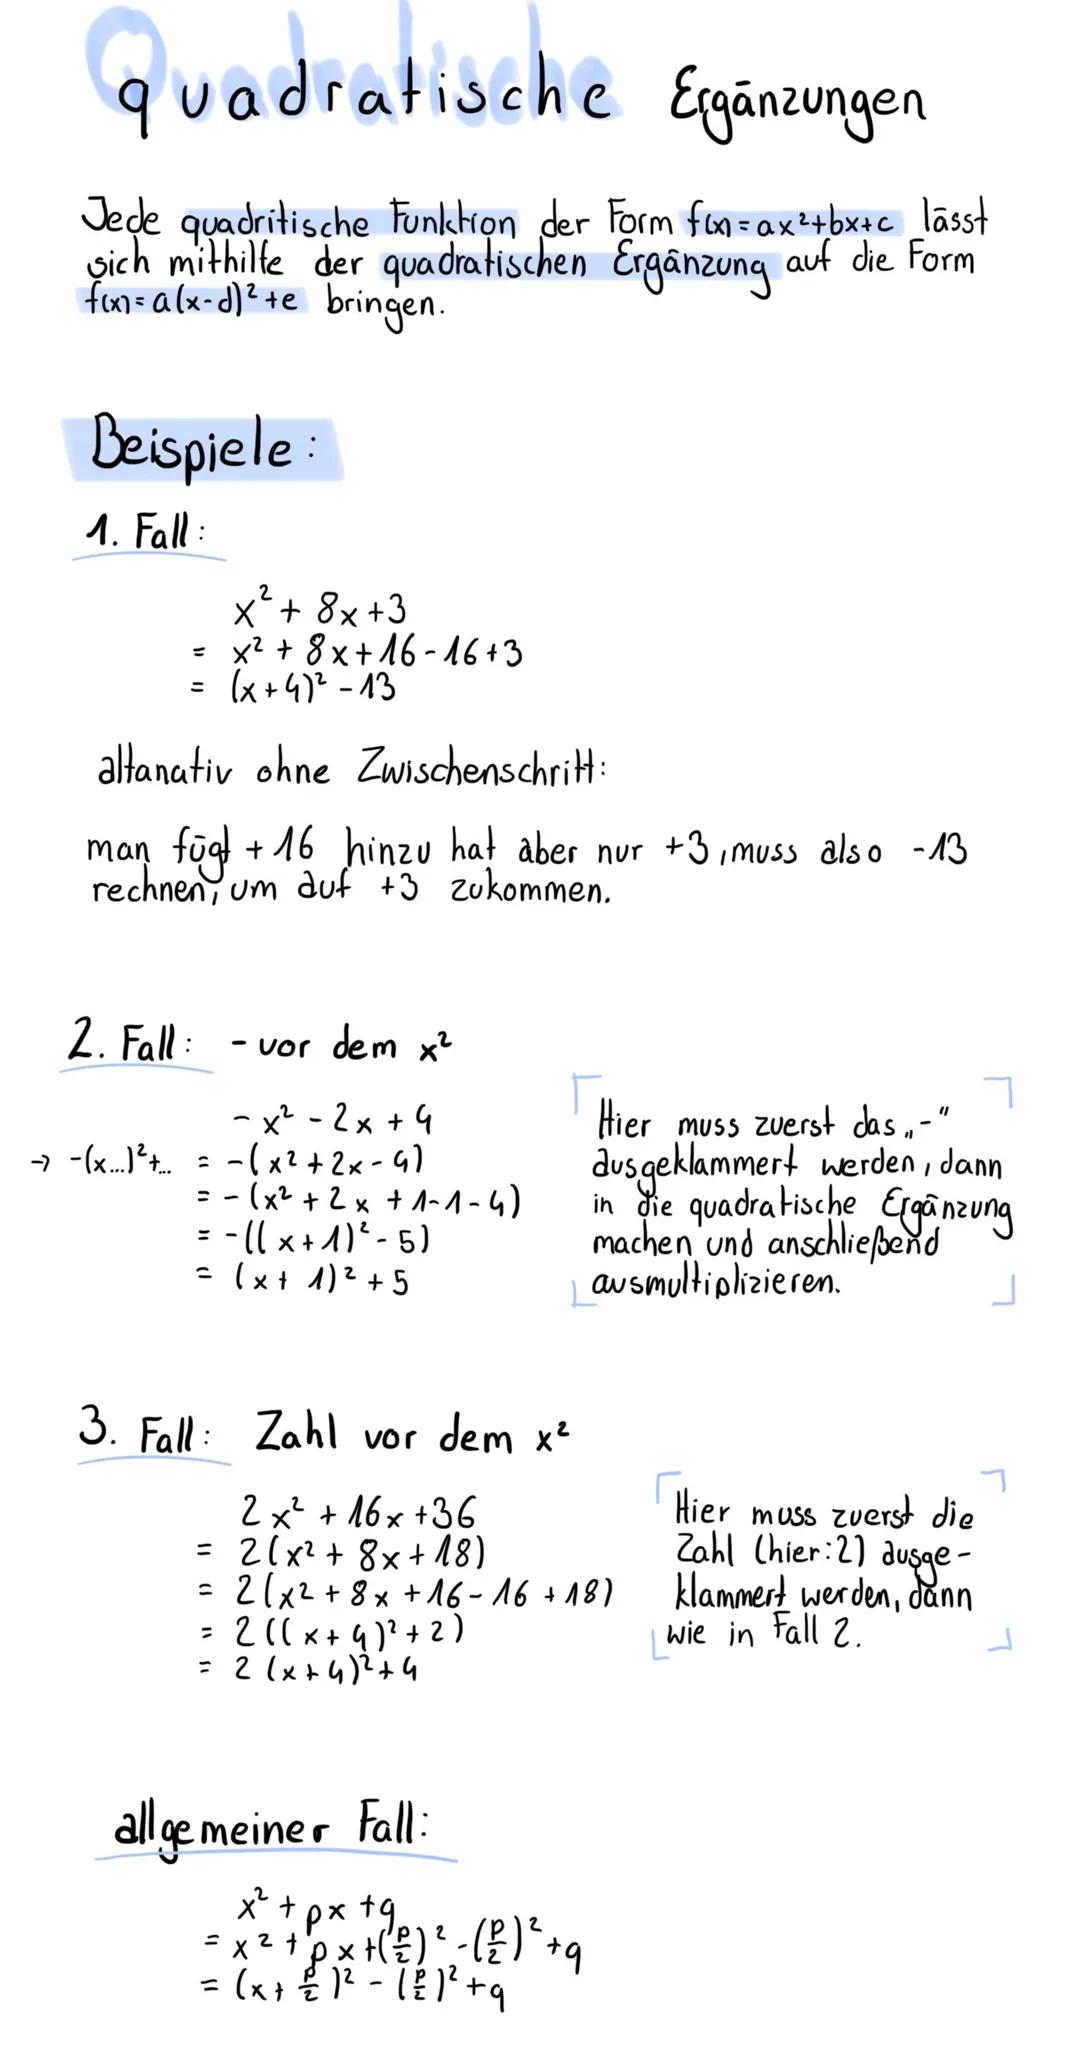 Quadratische
quadratische Ergänzungen
Jede quadritische Funktion der Form f(x)=ax²+bx+c lässt
sich mithilfe der quadratischen Ergänzung auf die Form
f(x)=a(x-d)²+e bringen.
Beispiele:
1. Fall:
x²+ 8x+3
= x² + 8x+16-16+3
= (x+4)² -13
altanativ ohne Zwischenschritt:
man fügt +16 hinzu hat aber nur +3, muss also -13
rechnen, um auf +3 zukommen.
2. Fall: - vor dem x²
- x² - 2x + 4
→ -(x...)²+... = -(x²+2x-4)
= -(x²+2x+1-1-4)
= -((x+1)²-5)
= (x+1)²+5
Hier muss zuerst das „-“
ausgeklammert werden, dann
in die quadratische Ergänzung
machen und anschließend
ausmultiplizieren.
3. Fall: Zahl vor dem x²
2x² + 16x +36
= 2(x²+ 8x+18)
= 2(x²+8x+16-16+18)
= 2((x+4)²+2)
= 2(x+4)²+4
Hier muss zuerst die
Zahl (hier:2) ausge-
klammert werden, dann
wie in Fall 2.
allgemeiner Fall:
x²+px+q
= x²+px+(p/2)²-(p/2)²+q
= (x+p/2)²-(p/2)²+q